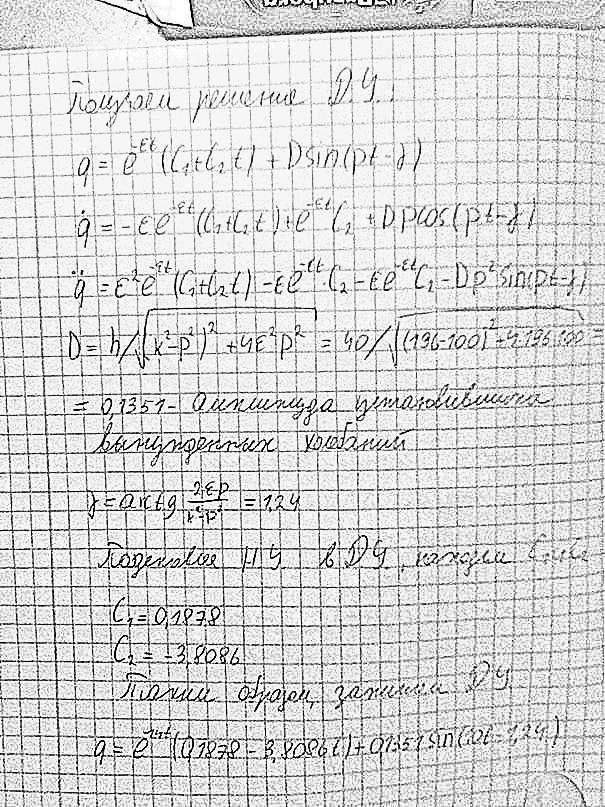 Получаем решение Д.У.:
q = e^{-εt}(C₁+C₂t) + Dsin(pt-γ)
q̇ = -εe^{-εt}(C₁+C₂t)+e^{-εt}C₂ + Dpcos(pt-γ)
q̈ = ε²e^{-εt}(C₁+C₂t) -εe^{-εt}·C₂ -εe^{-εt}C₂ -Dp²sin(pt-γ)
D = h/√((k²-p²)² +4ε²p²) = 40/√((196-100)²+4·196·100) =
= 0,1351- Амплитуда установившихся
вынужденных колебаний
γ = arctg 2εp/(k²-p²) = 1,24
НУ в ДУ, находим C₁ и C₂
C₁ = 0,1878
C₂ = -3,8086
Таким образом, запишем ДУ
q = e^{-14t}(0,1878 - 3,8086t)+0,1351sin(10t-1,24)